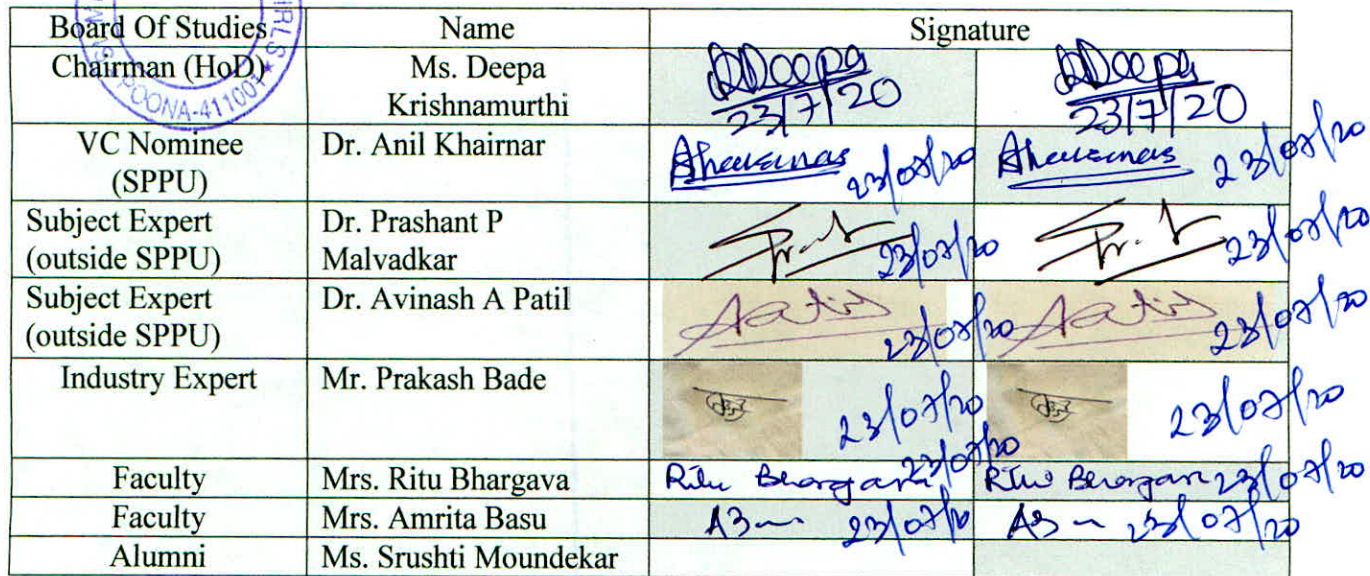 Board Of Studies Name Signature
Chairman (HoD) Ms. Deepa Krishnamurthi DDeepa 23/7/20 DDeepa 23/7/20
VC Nominee (SPPU) Dr. Anil Khairnar 23/07/20 23/07/20
Subject Expert (outside SPPU) Dr. Prashant P Malvadkar 23/07/20 23/07/20
Subject Expert (outside SPPU) Dr. Avinash A Patil 23/07/20 23/07/20
Industry Expert Mr. Prakash Bade 23/07/20 23/07/20
23/07/20
Faculty Mrs. Ritu Bhargava Ritu Bhargava Ritu Bhargava 23/07/20
Faculty Mrs. Amrita Basu 23/07/20 23/07/20
Alumni Ms. Srushti Moundekar
POONA-411001